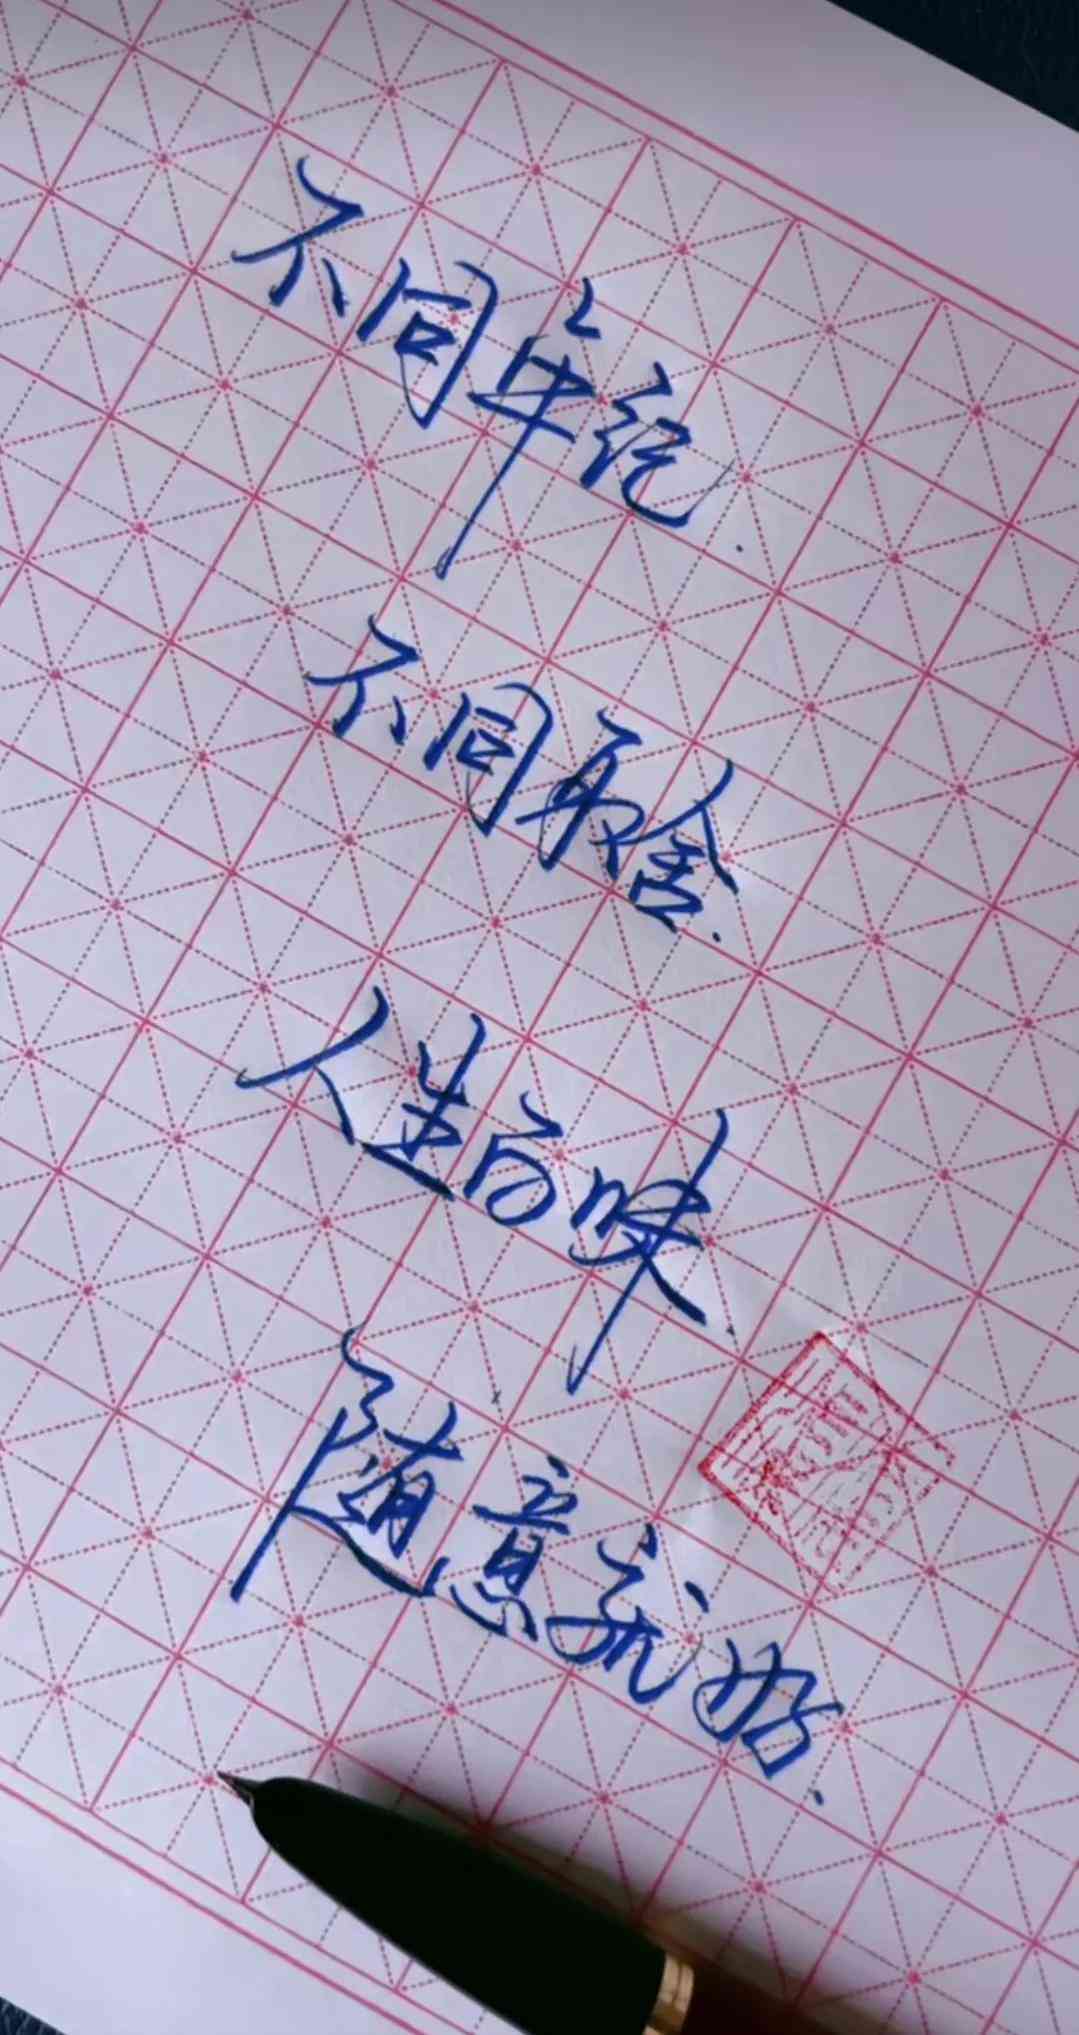 不同年纪.
不同取舍.
人生百味.
随意就好.